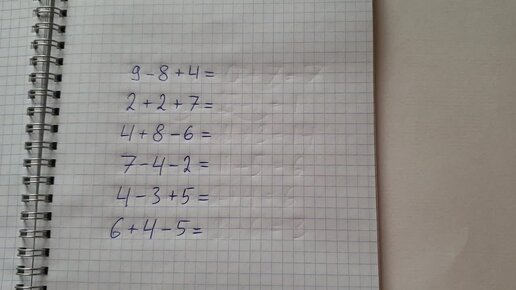 9-8+4=
2+2+7=
4+8-6=
7-4-2=
4-3+5=
6+4-5=